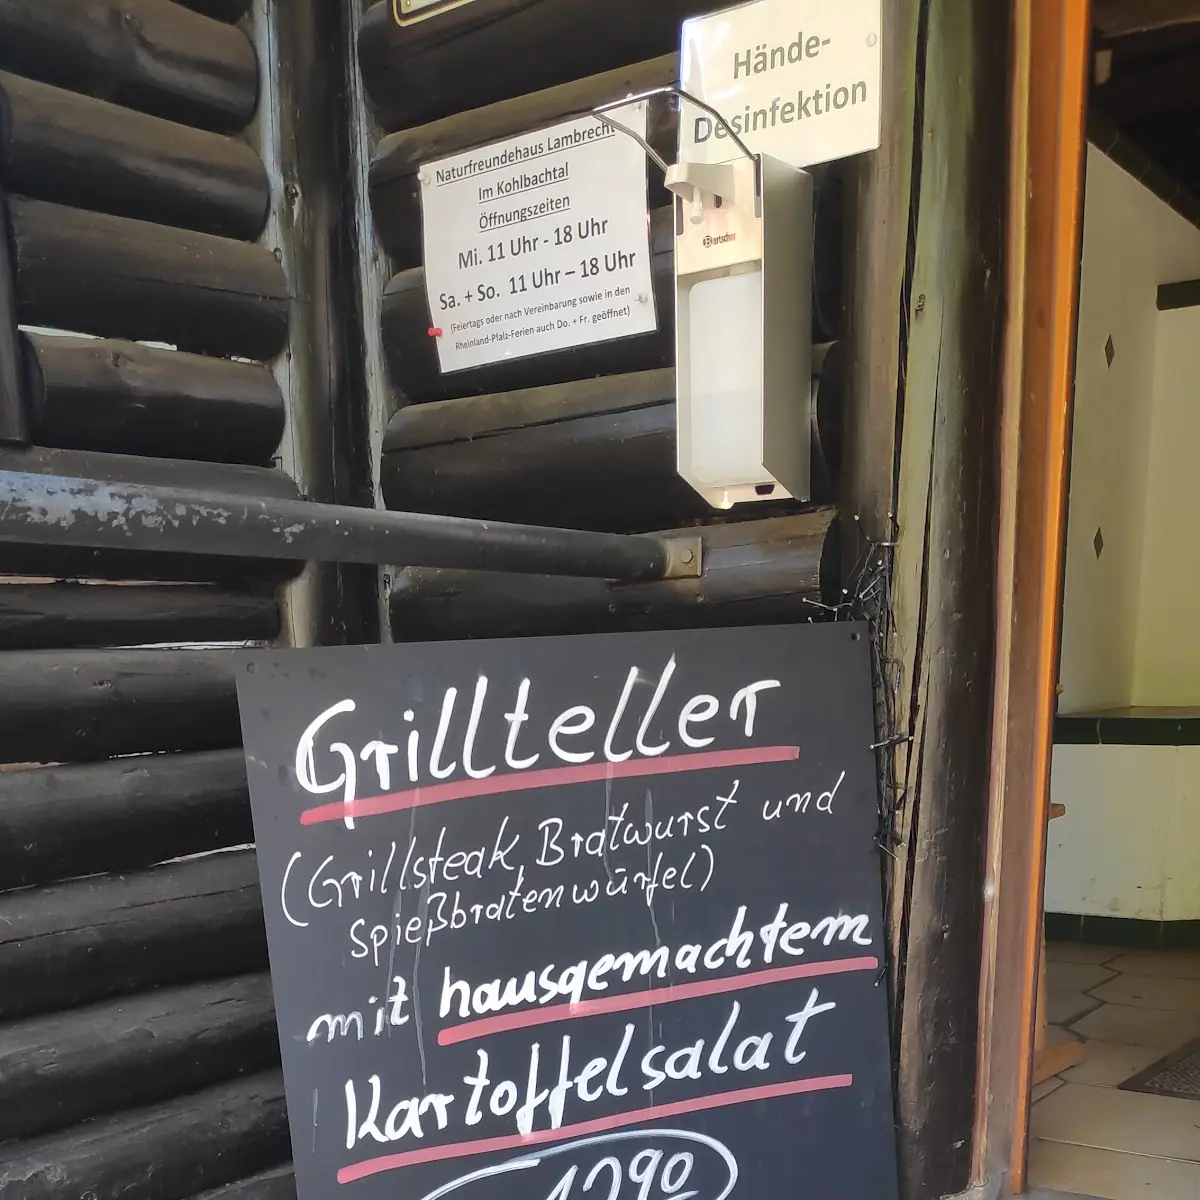 Hände-
Desinfektion
Naturfreundehaus Lambrecht
Im Kohlbachtal
Öffnungszeiten
Mi. 11 Uhr - 18 Uhr
Sa. + So. 11 Uhr – 18 Uhr
(Feiertags oder nach Vereinbarung sowie in den
Rheinland-Pfalz-Ferien auch Do. + Fr. geöffnet)
Bartscher
Grillteller
(Grillsteak, Bratwurst und
Spießbratenwürfel)
mit hausgemachtem
Kartoffelsalat
1290